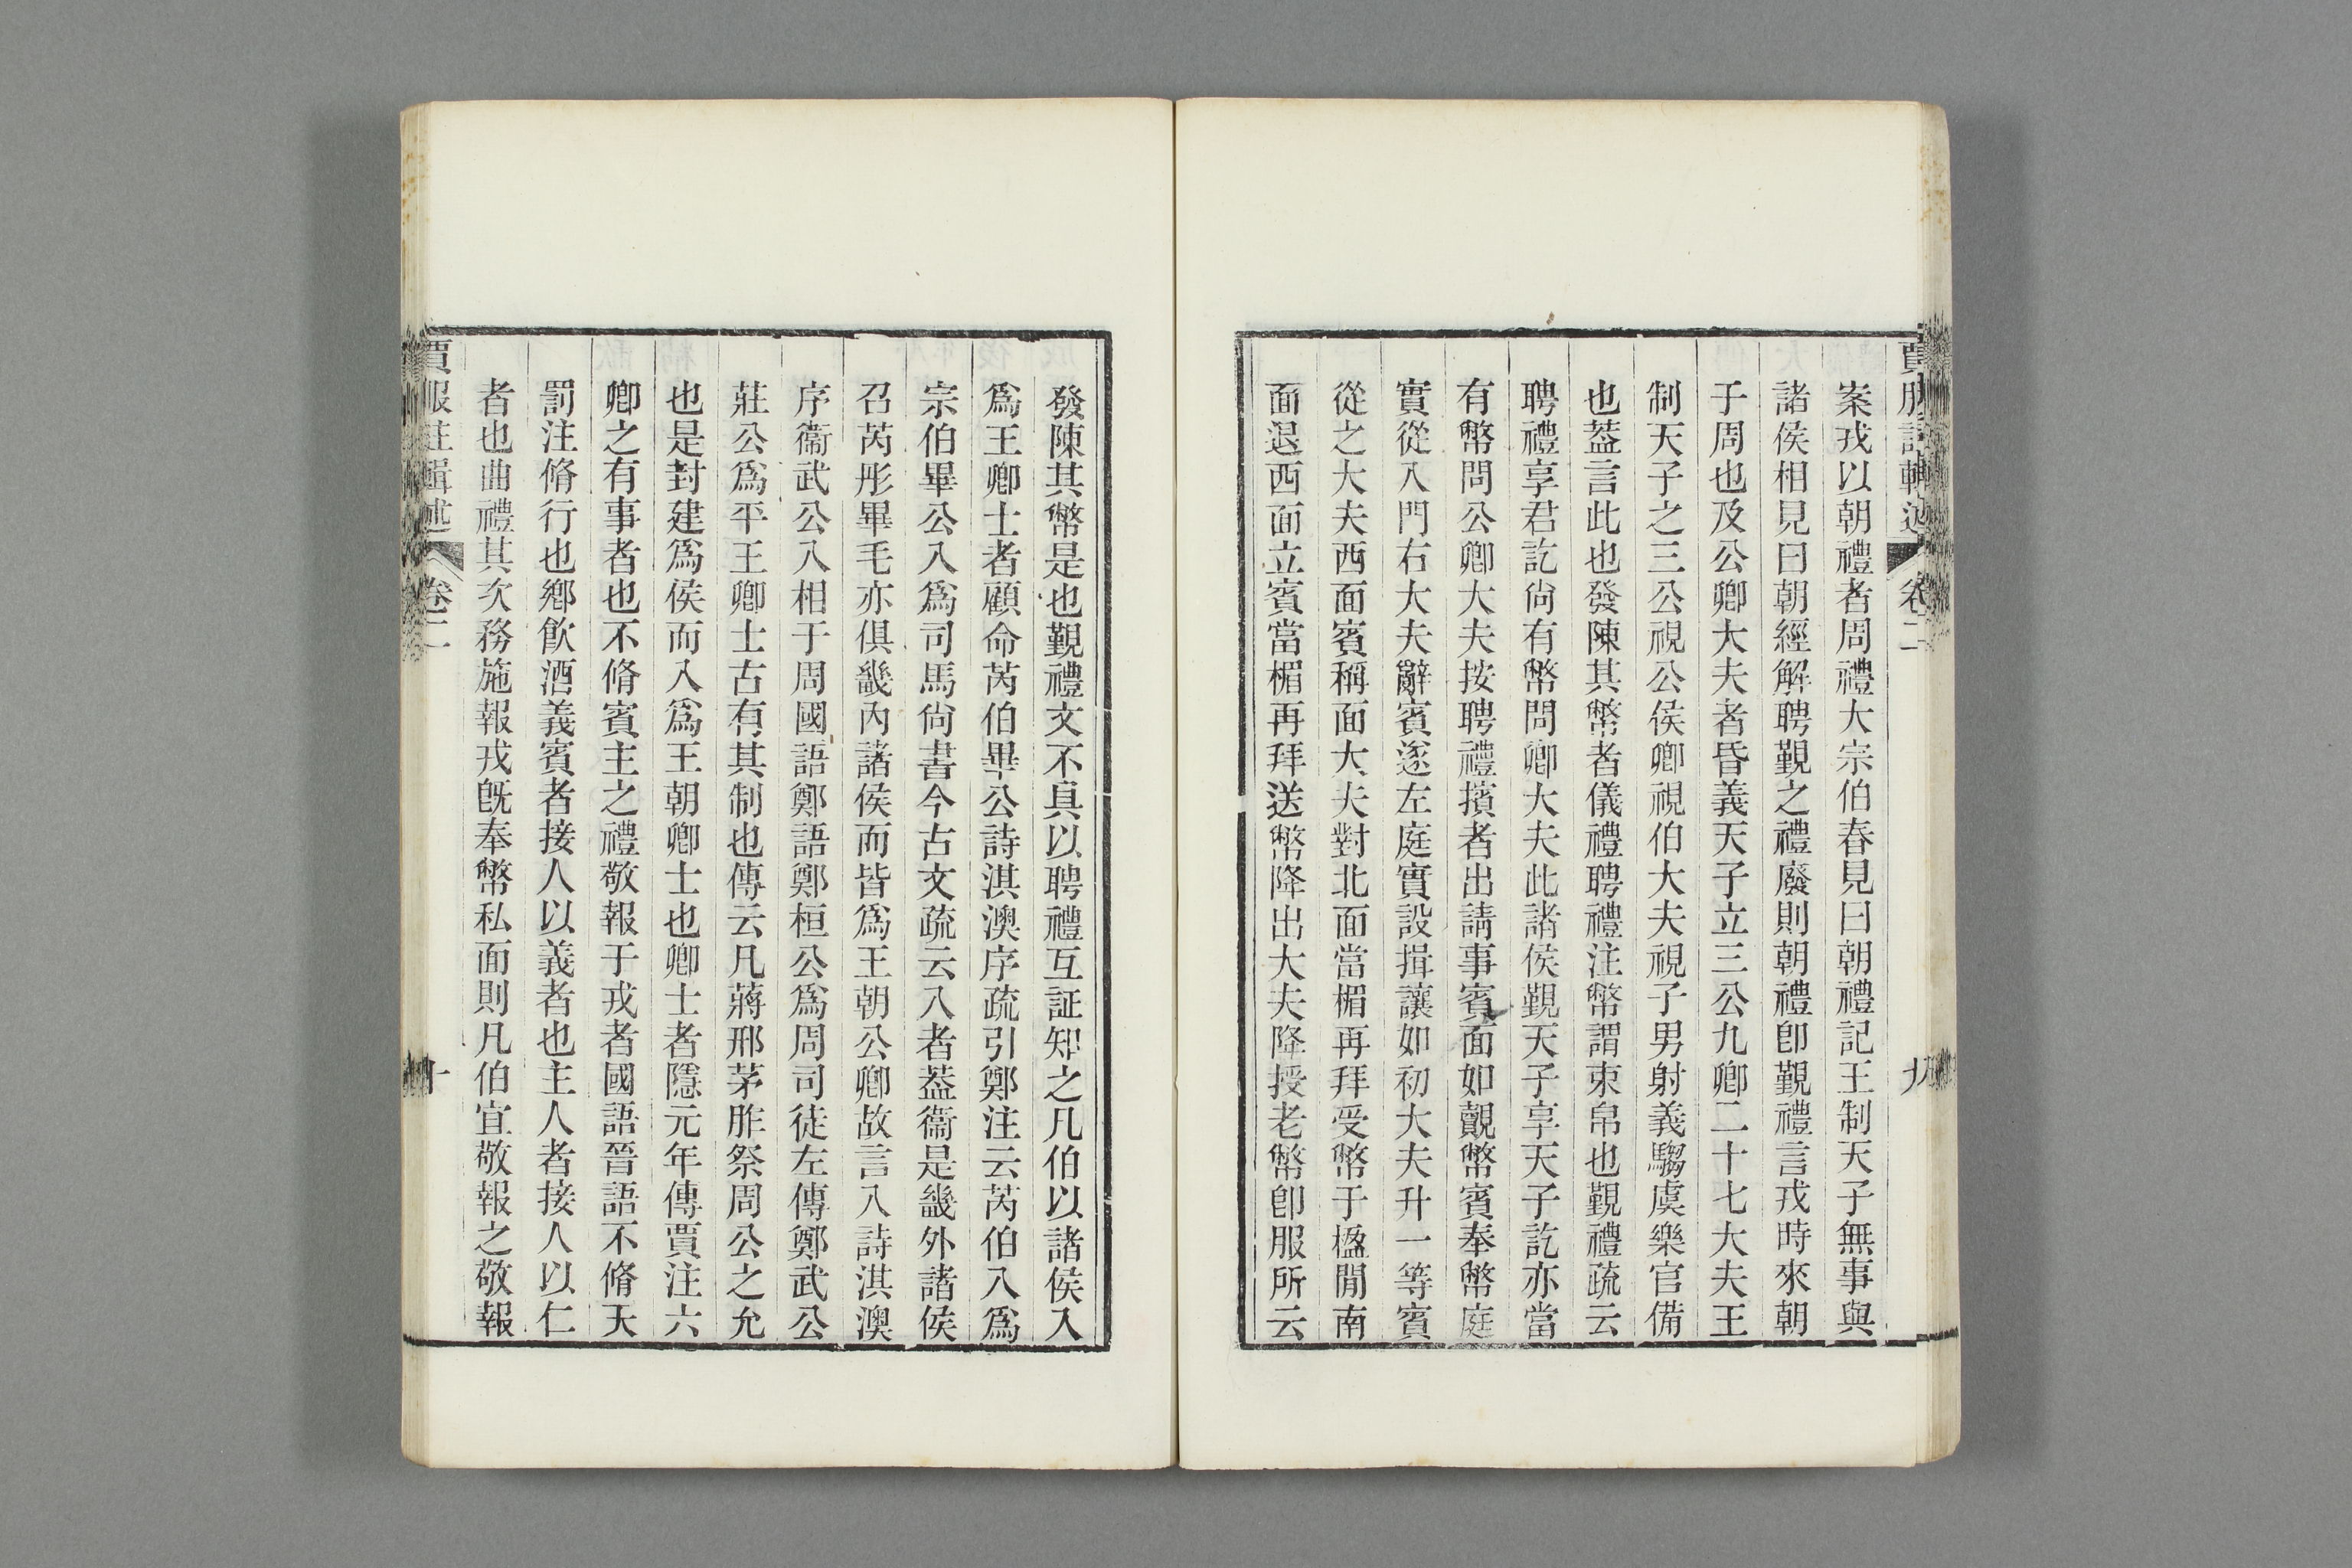 賈服註輯述 卷二 九
案戎以朝禮者周禮大宗伯春見曰朝禮記王制天子無事與
諸侯相見曰朝經解聘覲之禮廢則朝禮卽覲禮言戎時來朝
于周也及公卿大夫者昏義天子立三公九卿二十七大夫王
制天子之三公視公侯卿視伯大夫視子男射義騶虞樂官備
也葢言此也發陳其幣者儀禮聘禮注幣謂束帛也覲禮疏云
聘禮享君訖尙有幣問卿大夫此諸侯覲天子享天子訖亦當
有幣問公卿大夫按聘禮擯者出請事賓面如覿幣賓奉幣庭
實從入門右大夫辭賓遂左庭實設揖讓如初大夫升一等賓
從之大夫西面賓稱面大夫對北面當楣再拜受幣于楹閒南
面退西面立賓當楣再拜送幣降出大夫降授老幣卽服所云
發陳其幣是也覲禮文不具以聘禮互証知之凡伯以諸侯入
爲王卿士者顧命芮伯畢公詩淇澳序疏引鄭注云芮伯入爲
宗伯畢公入爲司馬尙書今古文疏云入者葢衞是畿外諸侯
召芮彤畢毛亦俱畿內諸侯而皆爲王朝公卿故言入詩淇澳
序衞武公入相于周國語鄭語鄭桓公爲周司徒左傳鄭武公
莊公爲平王卿士古有其制也傳云凡蔣邢茅胙祭周公之允
也是封建爲侯而入爲王朝卿士也卿士者隱元年傳賈注六
卿之有事者也不脩賓主之禮敬報于戎者國語晉語不脩天
罰注脩行也鄕飮酒義賓者接人以義者也主人者接人以仁
者也曲禮其次務施報戎旣奉幣私面則凡伯宜敬報之敬報
賈服註輯述 卷二 十